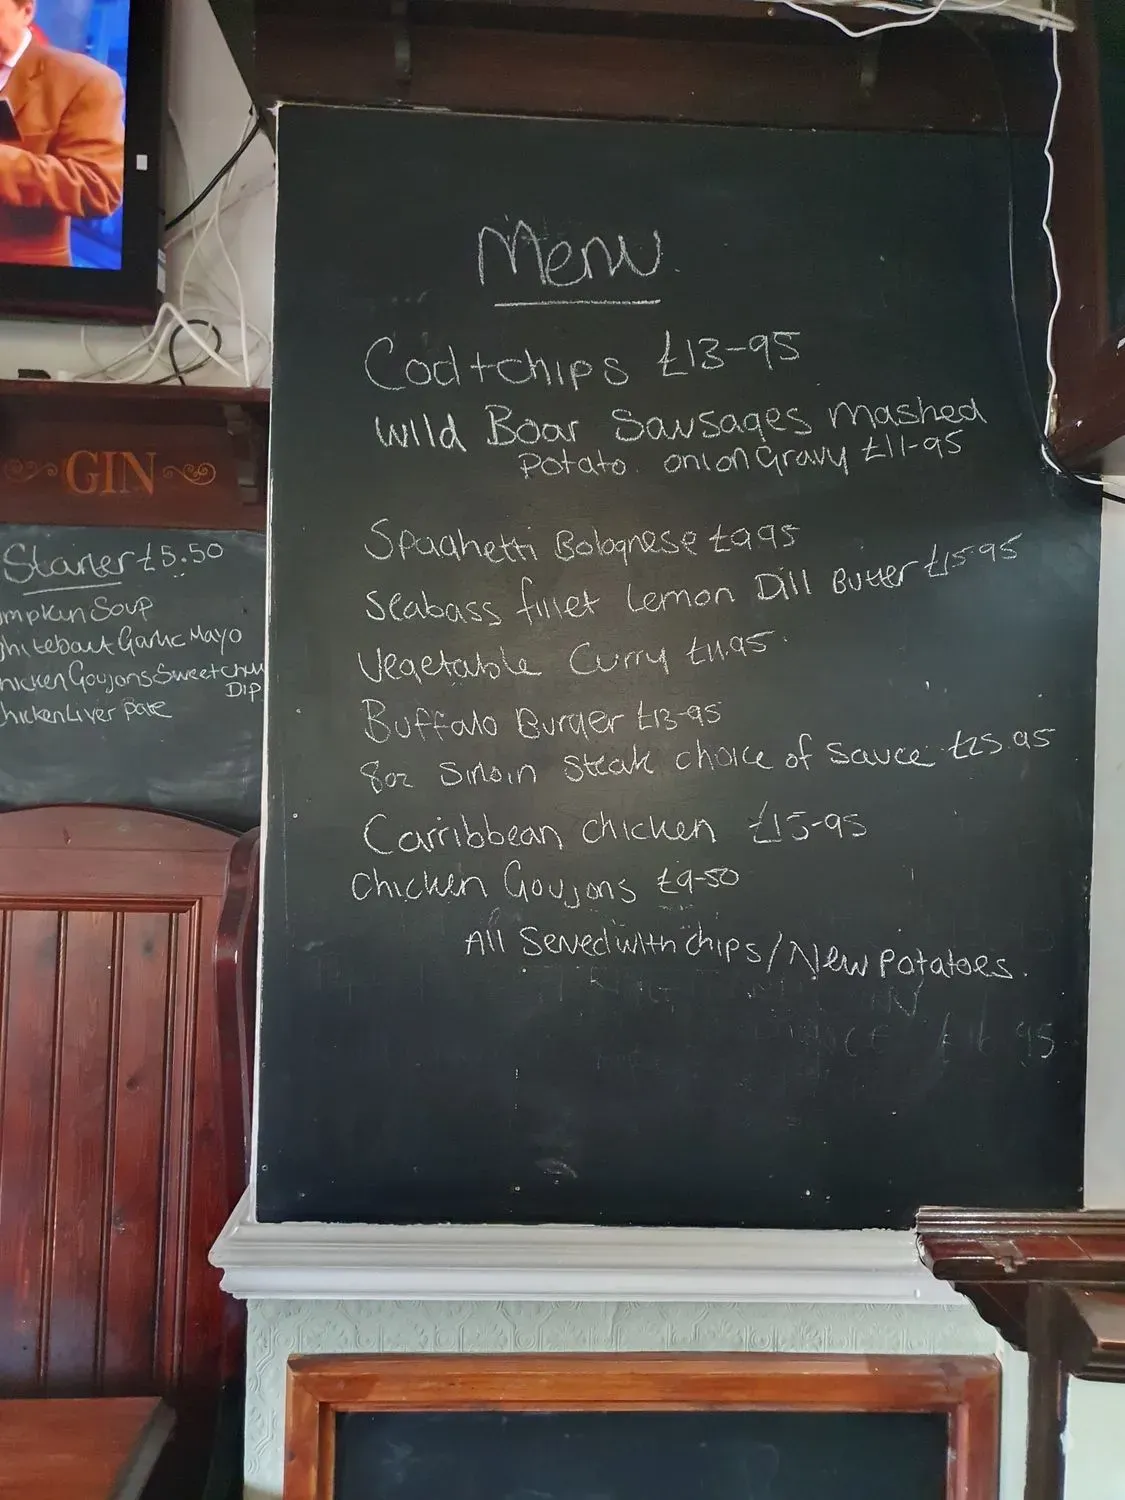 Menu
Cod + chips £13-95
Wild Boar Sausages mashed
potato. onion Gravy £11-95
Spaghetti Bolognese £9.95
Seabass fillet Lemon Dill Butter £15.95
Vegetable Curry £11.95
Buffalo Burger £13-95
8oz Sirloin Steak choice of Sauce £25.95
Carribbean chicken £15-95
Chicken Goujons £9-50
All Served with chips / New Potatoes.
GIN
Starter £5.50
mpkin Soup
hitebait Garlic Mayo
hicken Goujons Sweet chilli
Dip
hicken Liver Pate